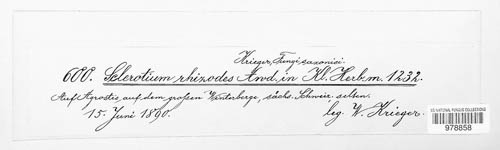 Krieger, Fungi saxonici.
600. Sclerotium rhizodes Awd. in Kl. Herb. m. 1232.
Auf Agrostis, auf dem großen Winterberge, sächs. Schweiz. selten.
15. Juni 1890. leg. W. Krieger.
US NATIONAL FUNGUS COLLECTIONS
978858